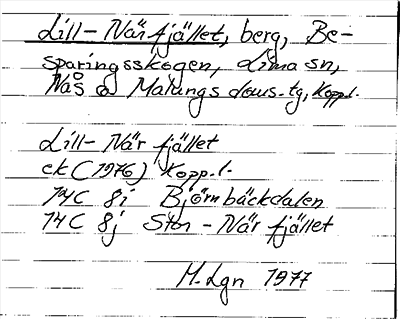 Lill-Närfjället, berg, Be-
sparingsskogen, Lima sn,
Nås o Malungs doms.tg, Kopp.l.
Lill-När fjället
ek (1976) Kopp.l.
14C 8i Björnbäckdalen
14C 8j Stor-När fjället
M.Lgn 1977